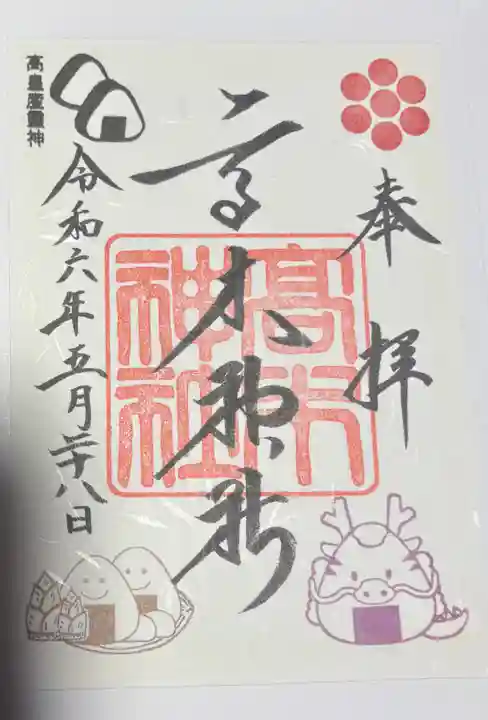 奉拝
高木神社
高木神社
令和六年五月二十八日
高皇産靈神